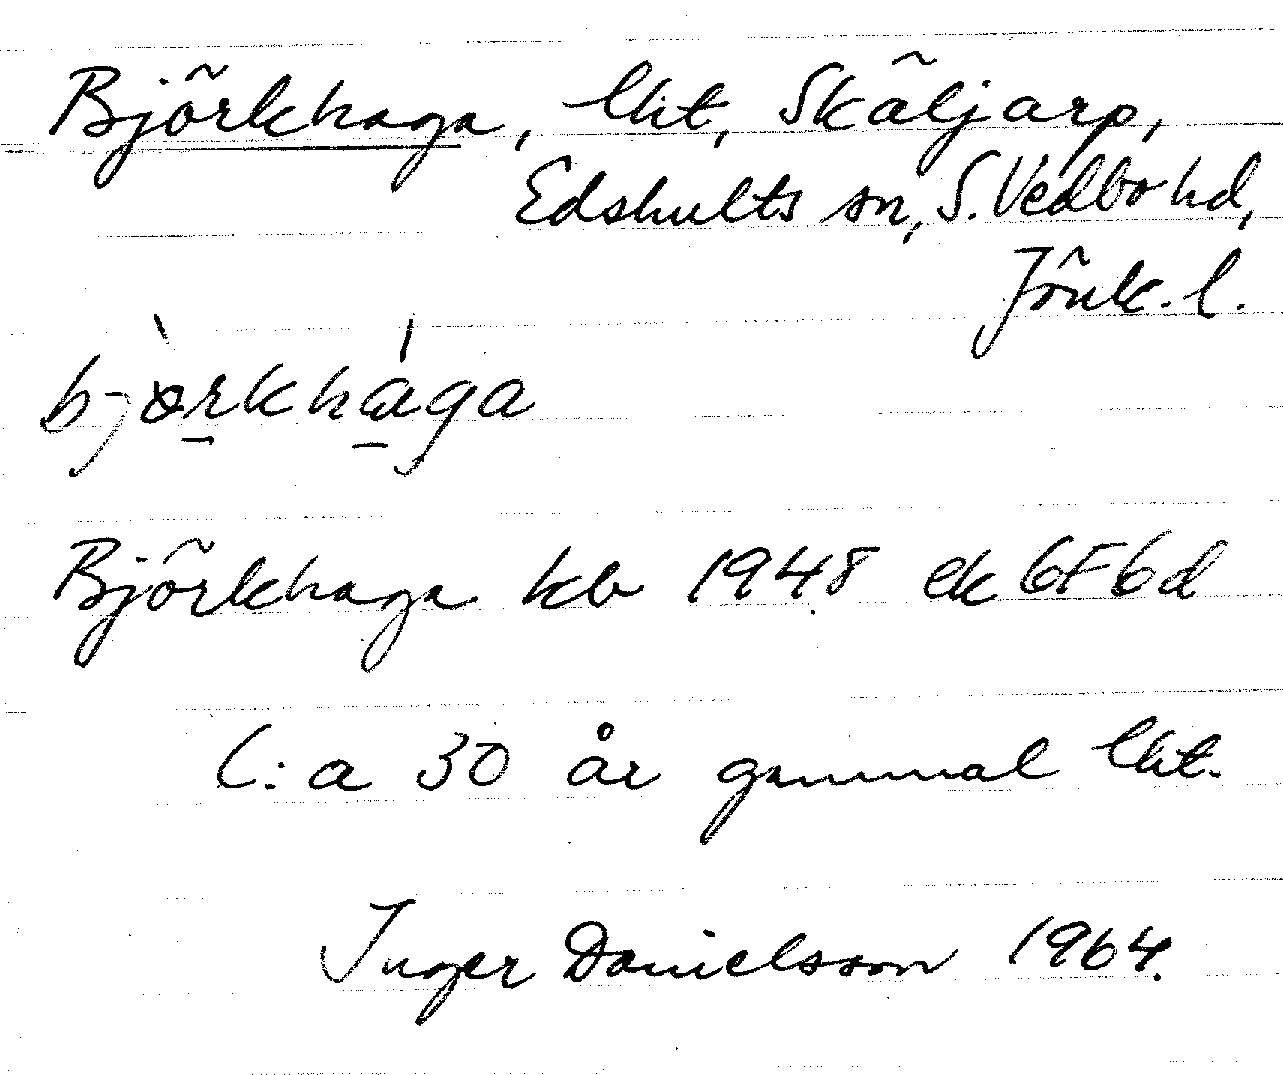 Björkhaga, lht, Skäljarp,
Edshults sn, S. Vedbo hd,
Jönk. l.
bjòrkhága
Björkhaga kb 1948 ek 6F6d
C:a 30 år gammal lht.
Inger Danielsson 1964.